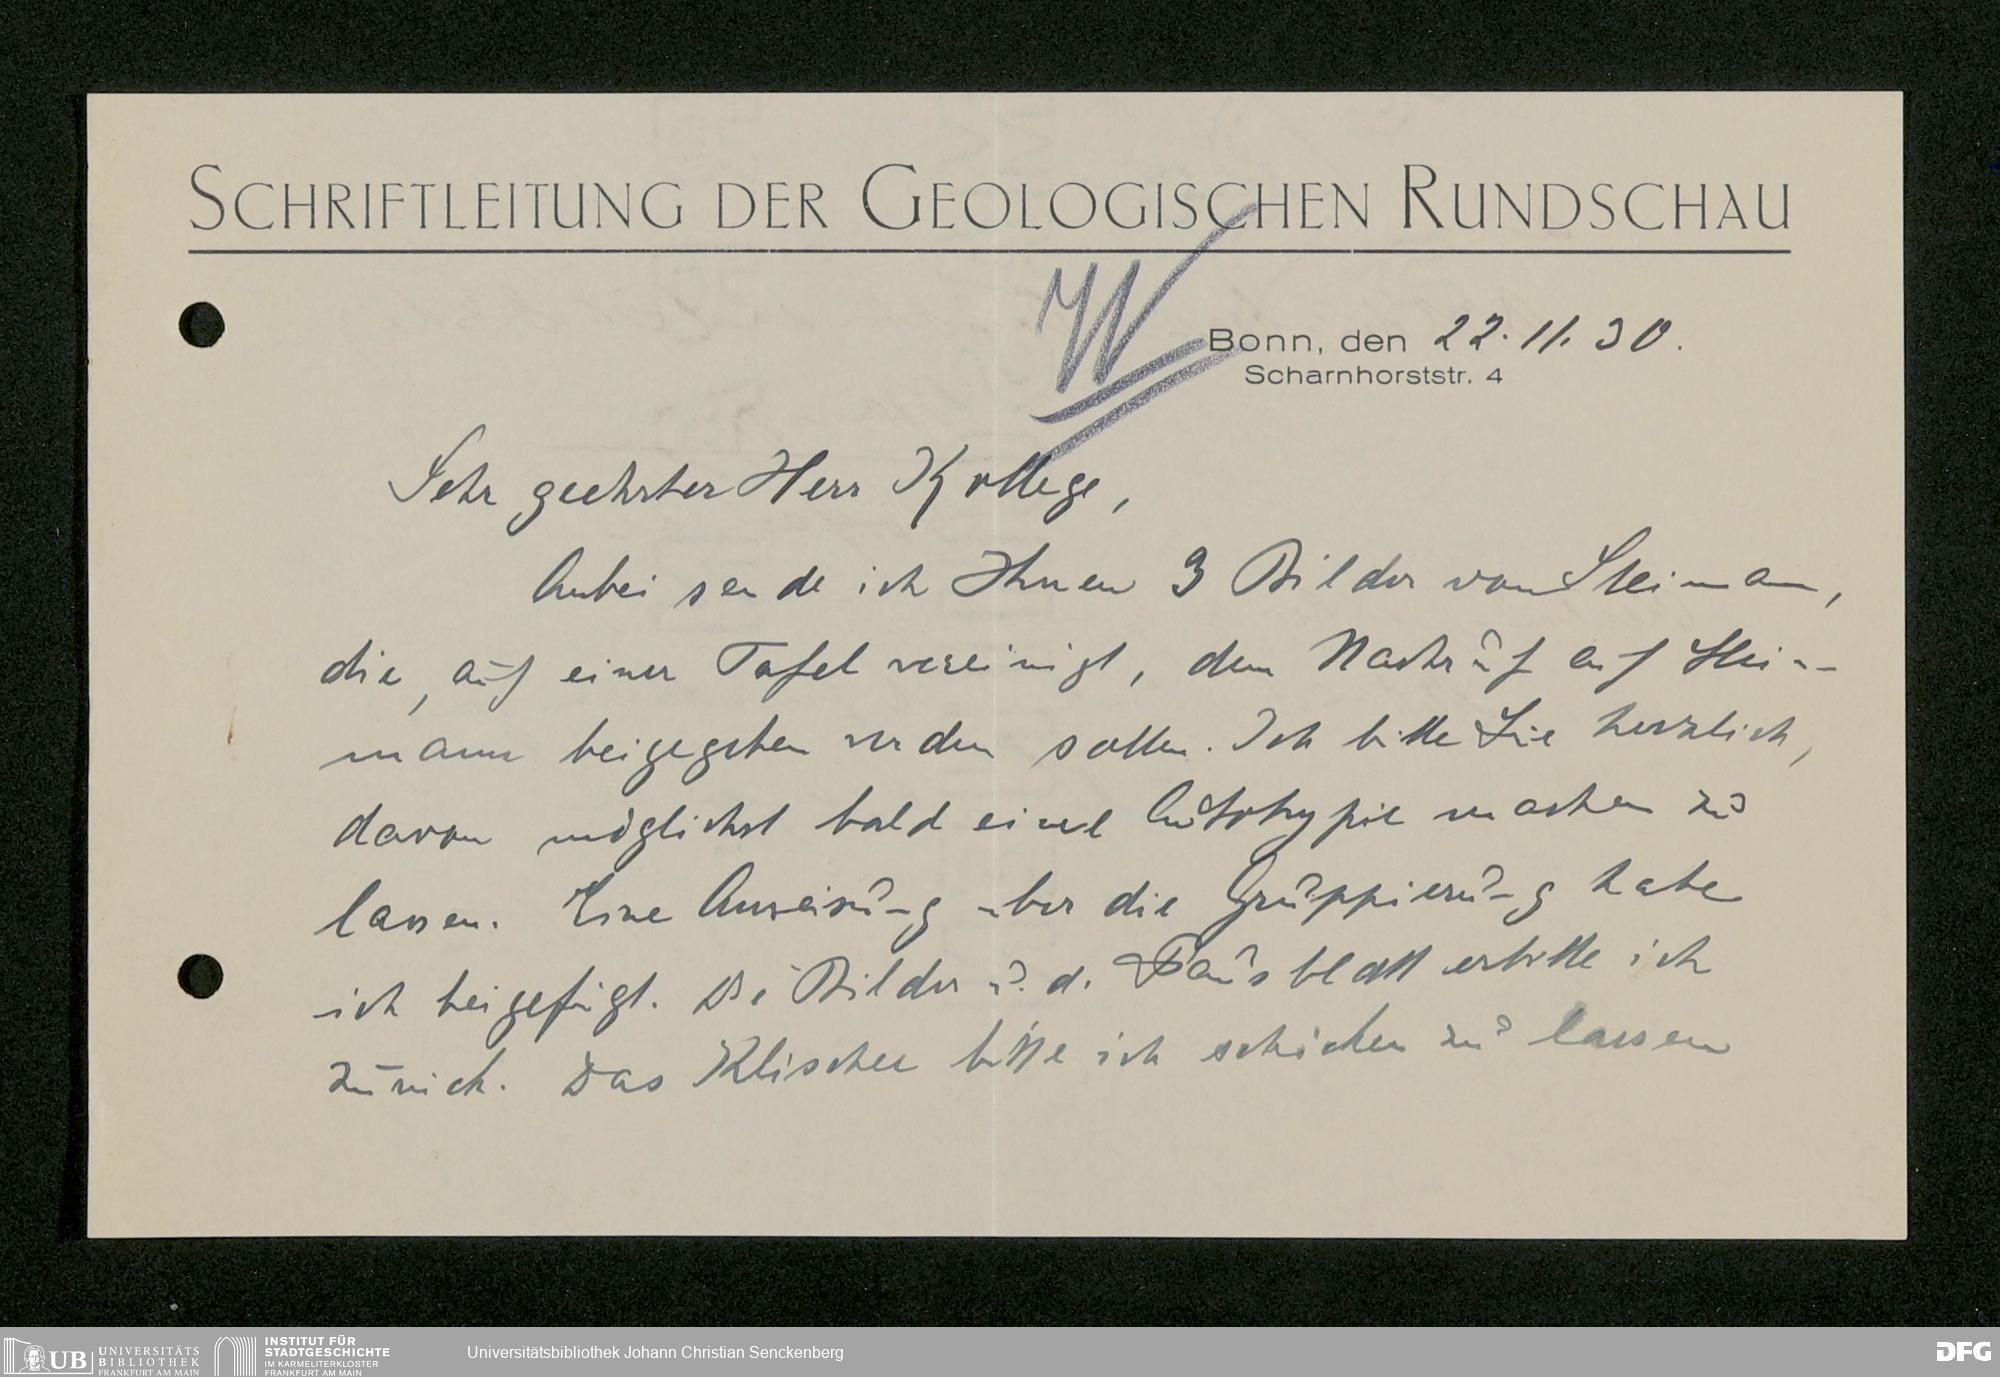 SCHRIFTLEITUNG DER GEOLOGISCHEN RUNDSCHAU
W
Bonn, den 22.11.30.
Scharnhorststr. 4
Sehr geehrter Herr Kollege,
Anbei sende ich Ihnen 3 Bilder von Steinmann,
die, auf einer Tafel vereinigt, dem Nachruf auf Stein-
mann beigegeben werden sollen. Ich bitte Sie herzlich,
davon möglichst bald eine Autotypie machen zu
lassen. Eine Anweisung über die Gruppierung habe
ich beigefügt. Die Bilder u. d. Pausblatt erbitte ich
zurück. Das Klischee bitte ich schicken zu lassen
UB UNIVERSITÄTS
BIBLIOTHEK
FRANKFURT AM MAIN
INSTITUT FÜR
STADTGESCHICHTE
IM KARMELITERKLOSTER
FRANKFURT AM MAIN
Universitätsbibliothek Johann Christian Senckenberg
DFG